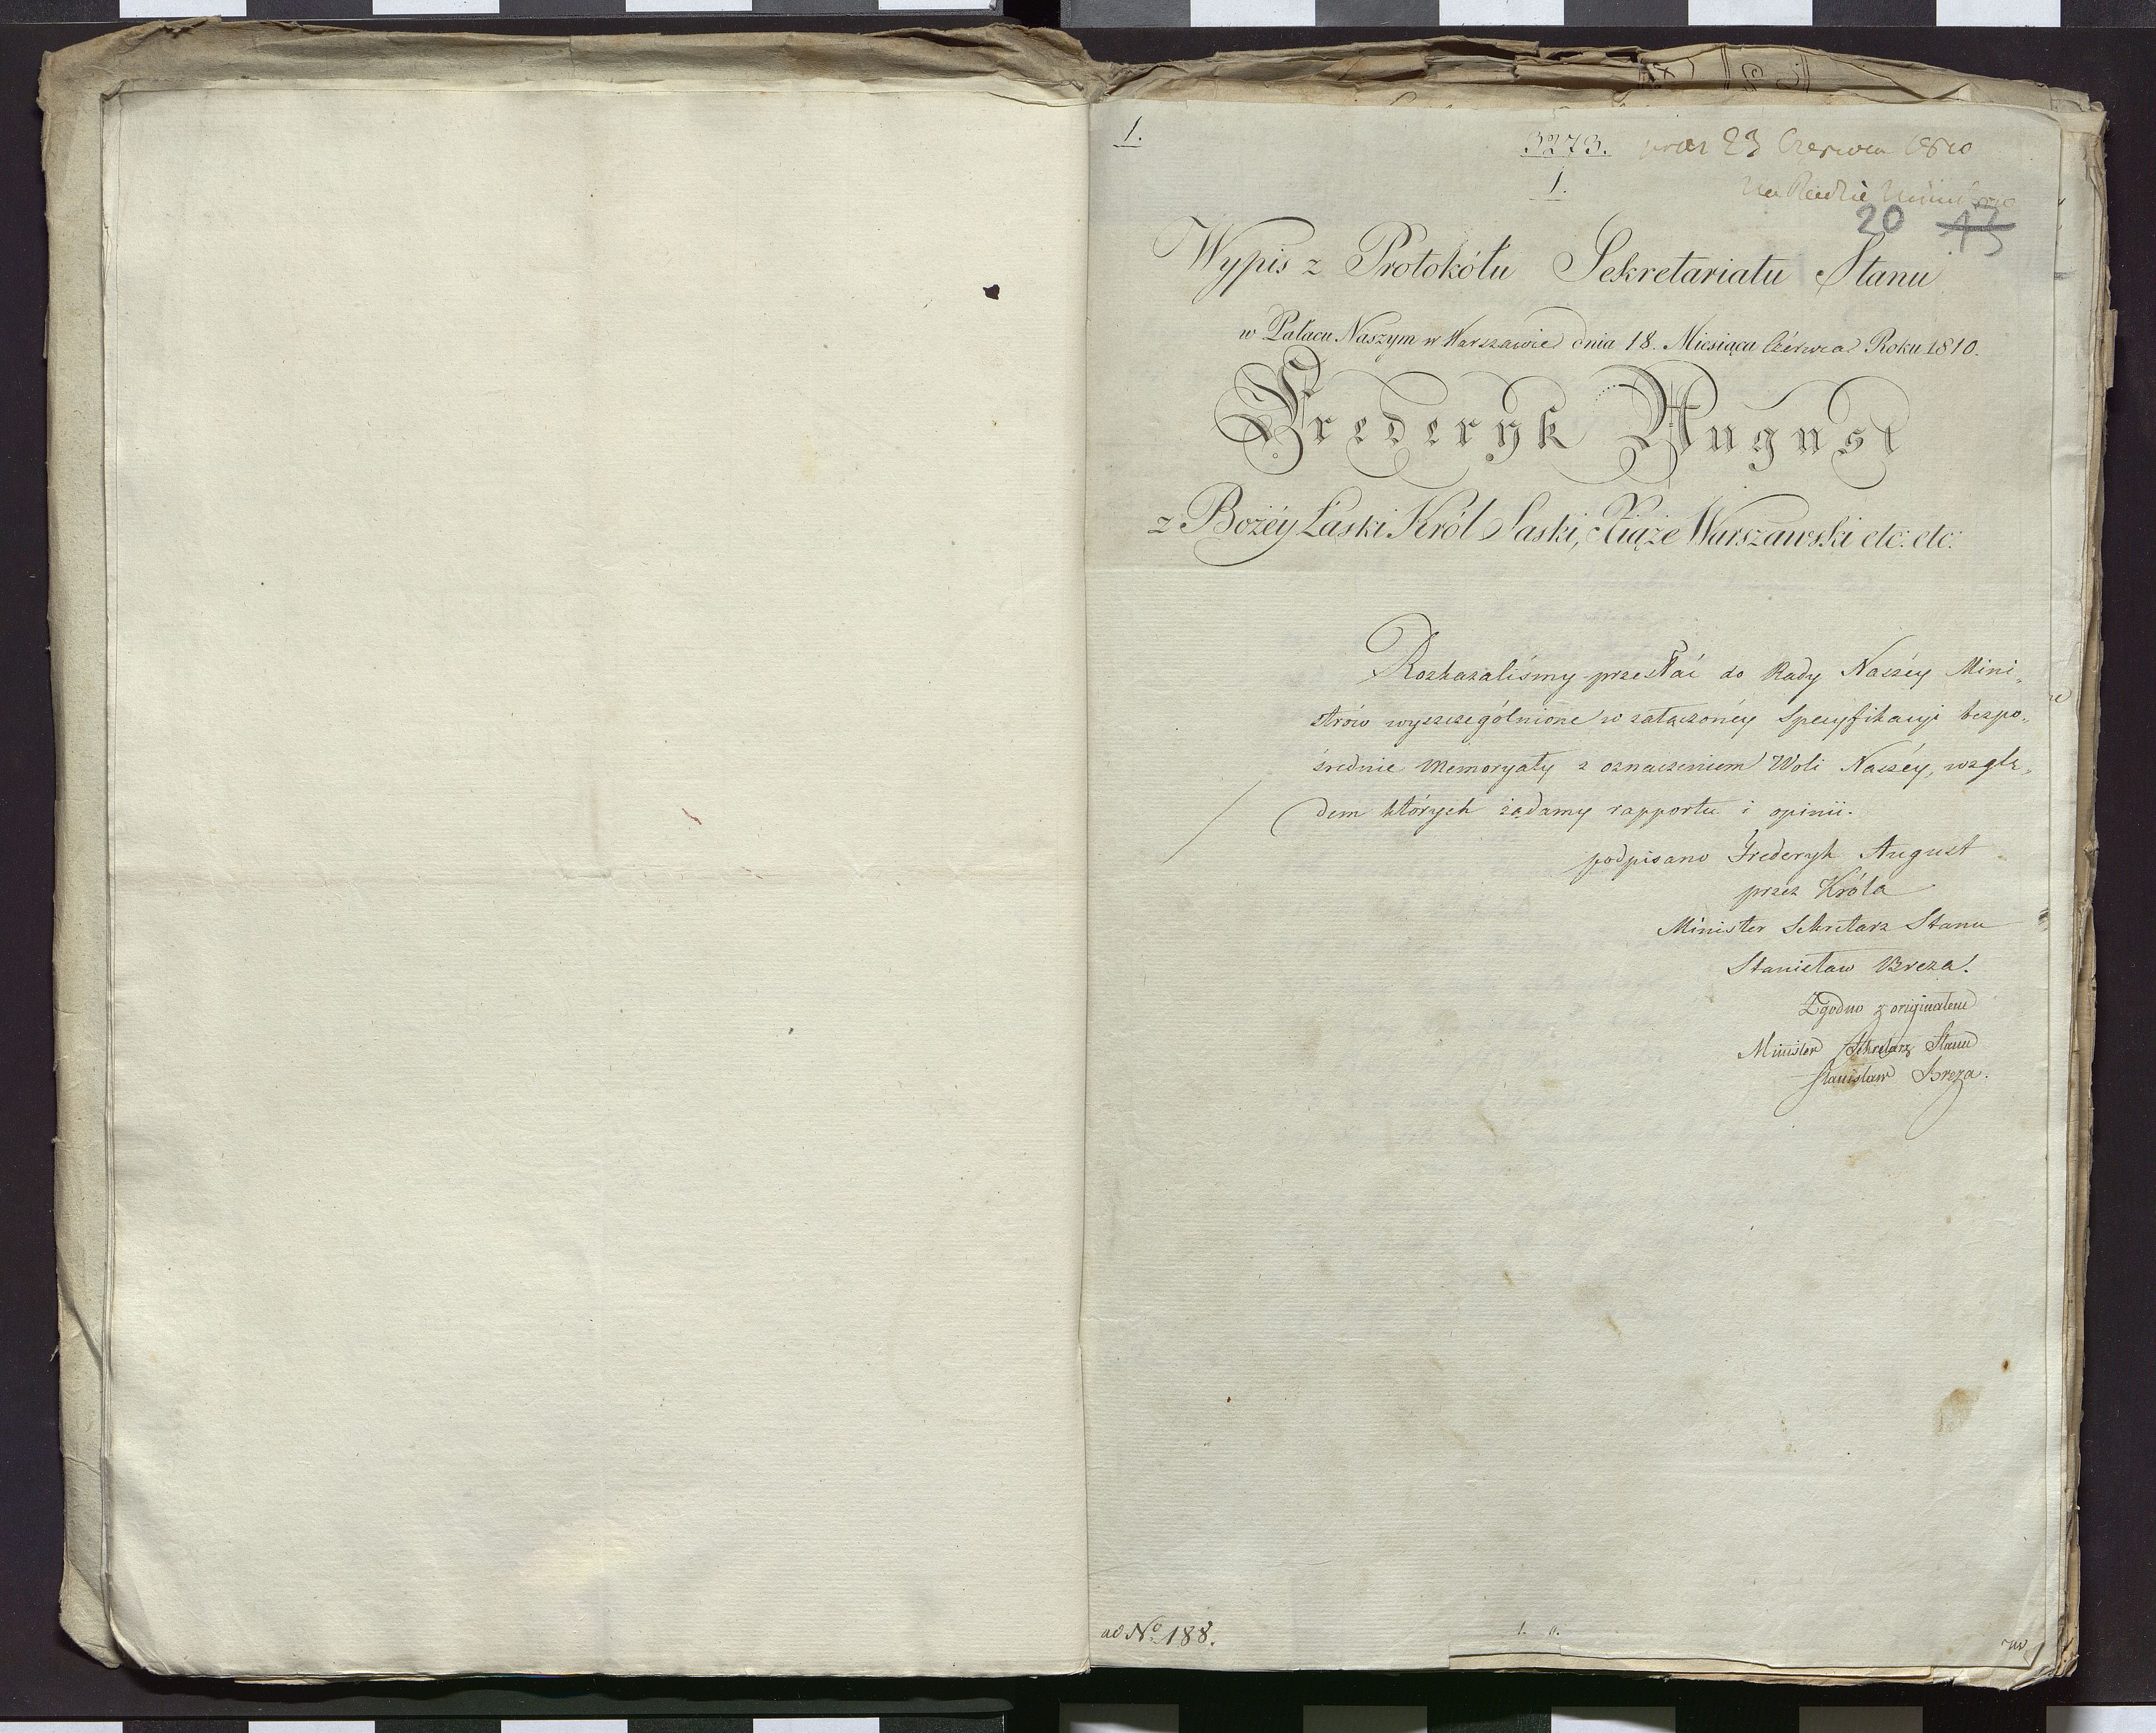 1.
3273. prez 23 Czerwca 1810
1.
Na Radzie Ministrów
20 13
Wypis z Protokółu Sekretariatu Stanu
w Pałacu Naszym w Warszawie dnia 18. Miesiąca Czérwca Roku 1810.
Frederyk August
z Bożéy Łaski Król Saski, Xiąże Warszawski etc: etc:
Rozkazaliśmy przesłać do Rady Naszéy Mini„
strów wyszczególnione w załączonéy Specyfikacyi bezpo„
średnie Memoryały z oznaczeniem Woli Naszéy, wzglę„
dem których żądamy rapportu i opinii.
podpisano Frederyk August
przez Króla
Minister Sekretarz Stanu
Stanisław Breza.
Zgodno z originałem
Minister Sekretarz Stanu
Stanisław Breza.
ad No. 188.